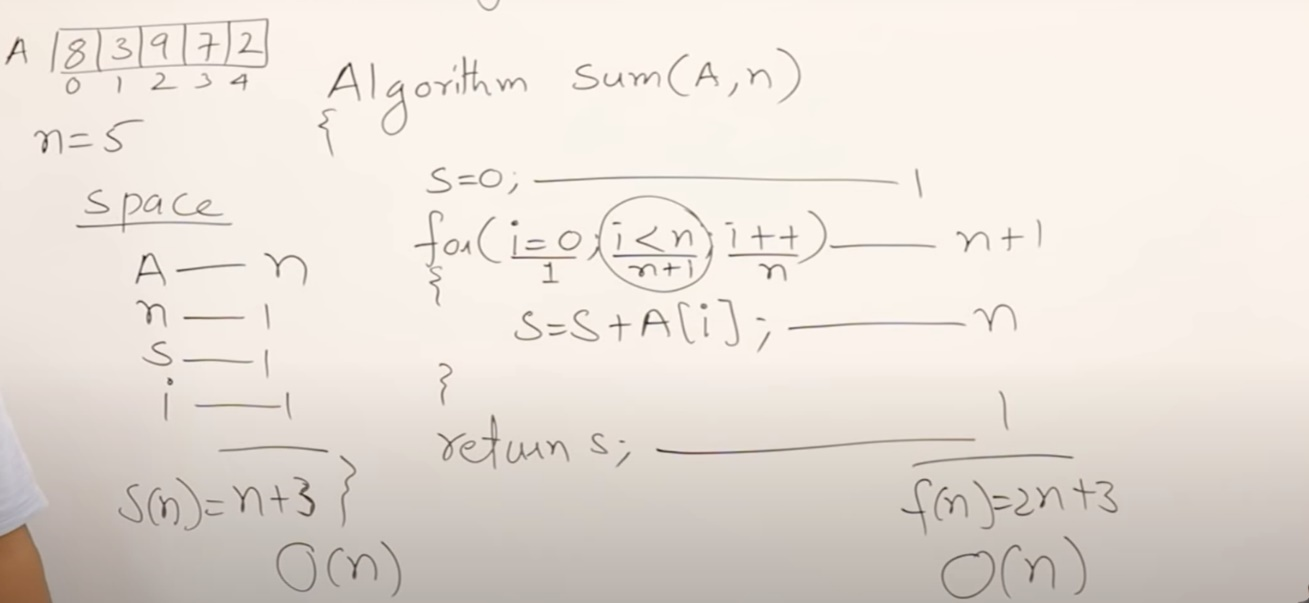 A 8 3 9 7 2
0 1 2 3 4
n=5
space
A — n
n — 1
s — 1
i — 1
S(n)=n+3
O(n)
Algorithm sum(A,n)
{
s=0; — 1
for(i=0; i<n; i++) — n+1
1 n+1 n
{
s=s+A[i]; — n
}
return s; — 1
}
f(n)=2n+3
O(n)